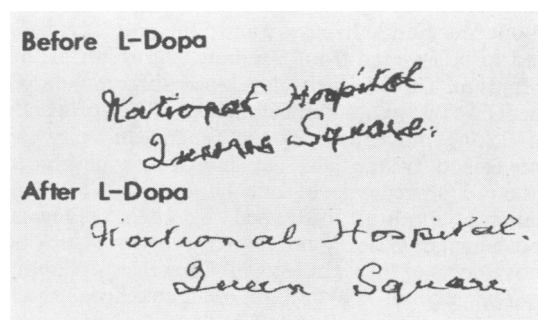 Before L-Dopa
National Hospital
Queens Square.
After L-Dopa
National Hospital.
Queen Square